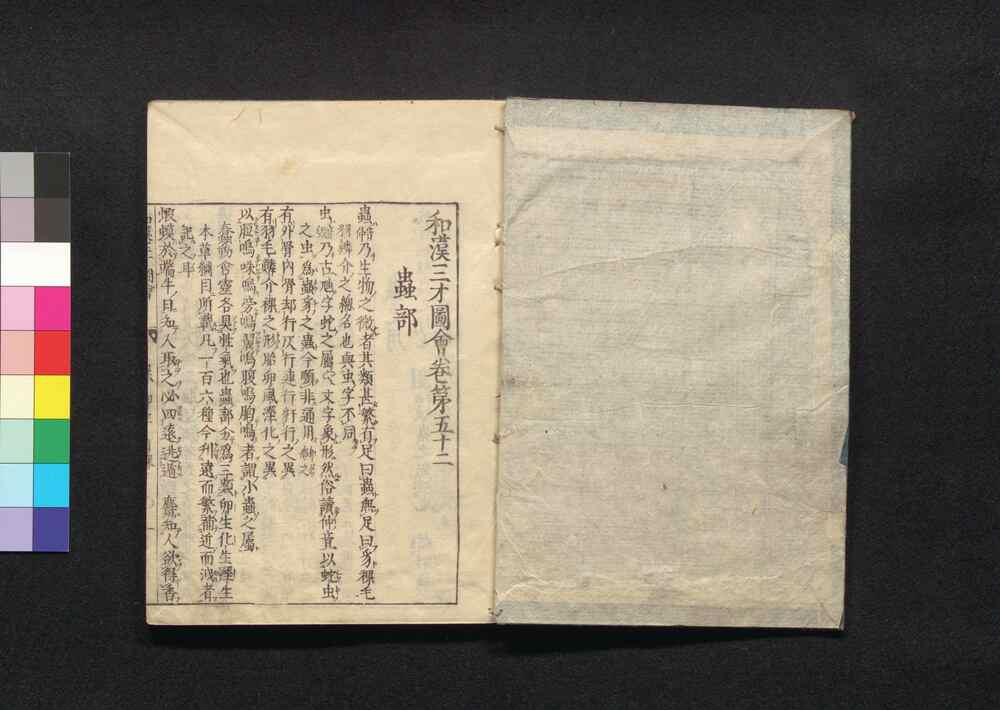 和漢三才圖會卷第五十二
蟲部
蟲乃生物之微者其類甚繁有足曰蟲無足曰豸裸毛
羽鱗介之總名也與虫字不同
虫乃古虺字蛇之屬文字象形然俗讀仲直以蛇虫
之虫為蟲豸之蟲今順非通用
有外骨內骨却行仄行連行紆行之異
有羽毛鱗介裸之形胎卵風濕化之異
以脰鳴咮鳴旁鳴翼鳴腹鳴胸鳴者謂小蟲之屬
蠢動含靈各具性氣也蟲部分為三類卵生化生濕生
本草綱目所載凡一百六種今刪遠而繁補近而洩者
記之耳
蝦蟇於端午日知人取之必四遠逃遁 麝知人欲得香